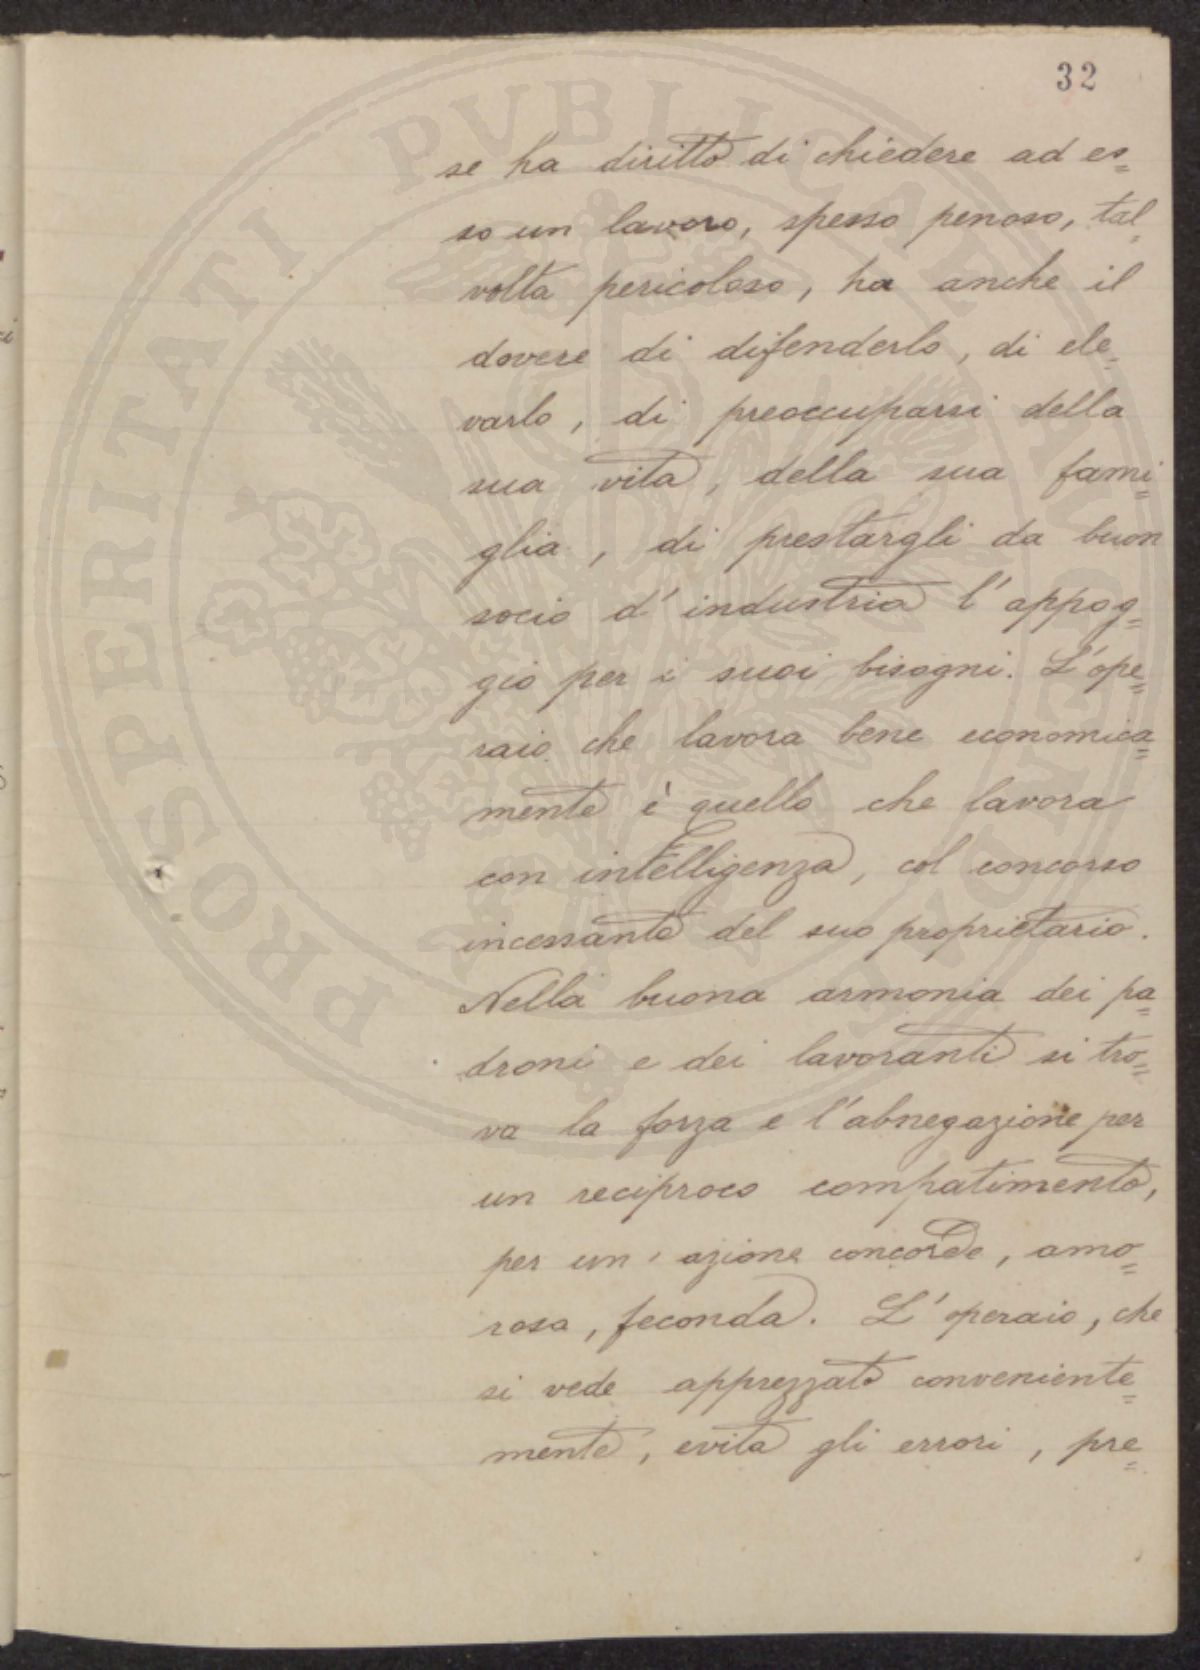 32
se ha diritto di chiedere ad es=
so un lavoro, spesso penoso, tal=
volta pericoloso, ha anche il
dovere di difenderlo, di ele=
varlo, di preoccuparsi della
sua vita, della sua fami=
glia, di prestargli da buon
socio d'industria l'appog=
gio per i suoi bisogni. L'ope=
raio che lavora bene economica=
mente è quello che lavora
con intelligenza, col concorso
incessante del suo proprietario.
Nella buona armonia dei pa=
droni e dei lavoranti si tro=
va la forza e l'abnegazione per
un reciproco compatimento,
per un'azione concorde, amo=
rosa, feconda. L'operaio, che
si vede apprezzato conveniente=
mente, evita gli errori, pre=
PROSPERITATI PVBLICAE AVGENDAE